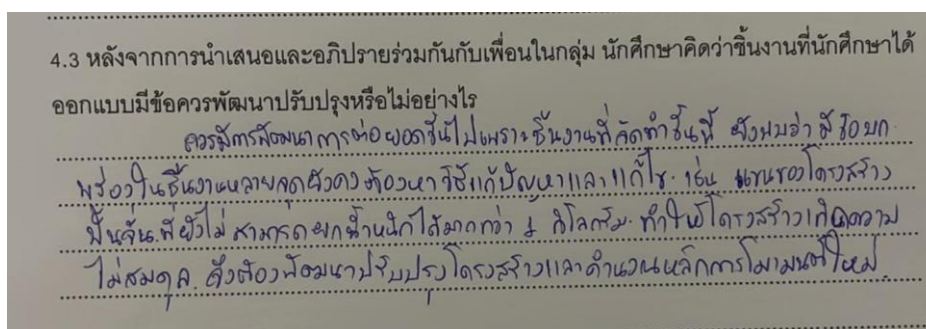 4.3 หลังจากการนำเสนอและอภิปรายร่วมกันกับเพื่อนในกลุ่ม นักศึกษาคิดว่าชิ้นงานที่นักศึกษาได้
ออกแบบมีข้อควรพัฒนาปรับปรุงหรือไม่อย่างไร
ควรมีการพัฒนาการต่อยอดขึ้นไปเพราะชิ้นงานที่จัดทำขึ้นนี้ ยังพบว่ามีข้อบก
พร่องในชิ้นงานหลายจุดยังคงต้องหาวิธีแก้ปัญหาและแก้ไข เช่น แขนของโครงสร้าง
ปั้นจั่นที่ยังไม่สามารถยกน้ำหนักได้มากกว่า 1 กิโลกรัม ทำให้โครงสร้างเกิดความ
ไม่สมดุล จึงต้องพัฒนาปรับปรุงโครงสร้างและคำนวณหลักการโมเมนต์ใหม่